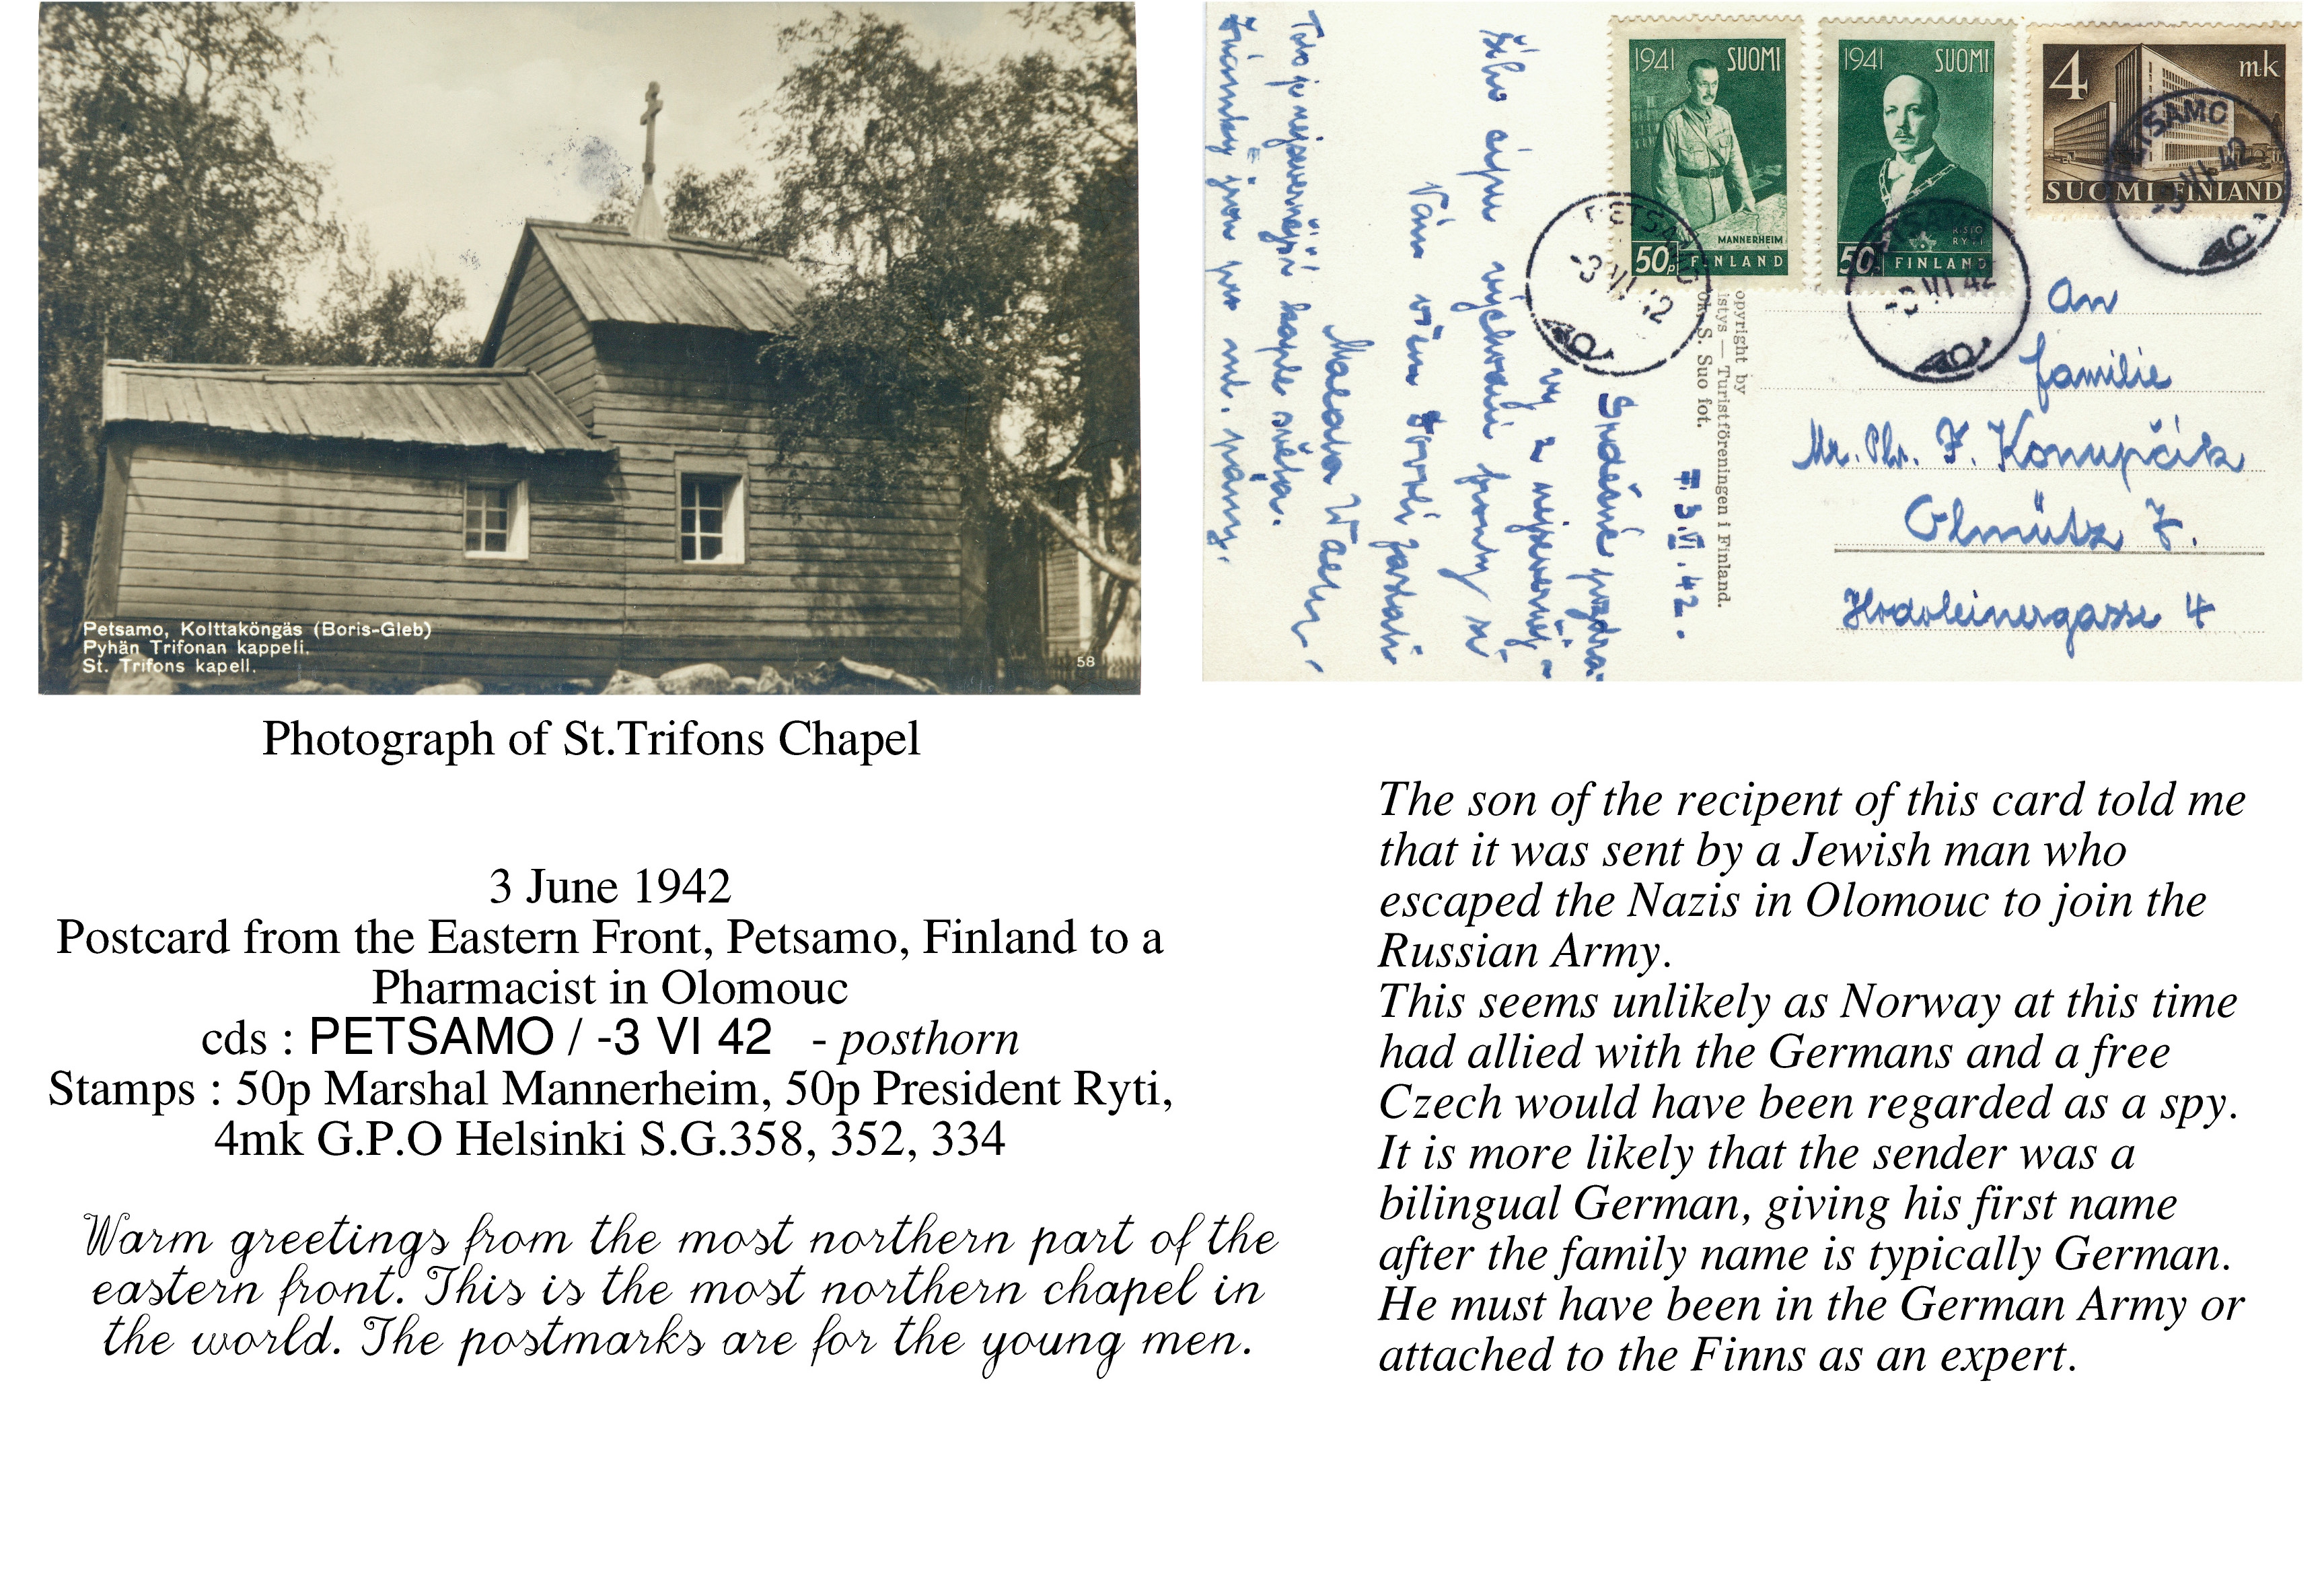 Petsamo, Kolttaköngäs (Boris-Gleb)
Pyhän Trifonan kappeli.
St. Trifons kapell.
58
1941 SUOMI
MANNERHEIM
50p FINLAND
1941 SUOMI
RISTO
RYTI
50p FINLAND
4 mk
SUOMI FINLAND
PETSAMO
-3 VI 42
PETSAMO
-3 VI 42
PETSAMO
-3 VI 42
opyright by
istys — Turistföreningen i Finland.
ok. S. Suo fot.
An
familie
Mr. Phr. F. Konupčík
Olmütz
Hodoleinergasse 4
3.VI.42.
Srdečné pozdra-
vy z nejseverněj-
šího cípu východní fronty si
Vám všem dovolí zaslati
Toto je nejsevernější kaple světa.
Známky jsou pro ml. pány.
Photograph of St.Trifons Chapel
3 June 1942
Postcard from the Eastern Front, Petsamo, Finland to a
Pharmacist in Olomouc
cds : PETSAMO / -3 VI 42 - posthorn
Stamps : 50p Marshal Mannerheim, 50p President Ryti,
4mk G.P.O Helsinki S.G.358, 352, 334
Warm greetings from the most northern part of the
eastern front. This is the most northern chapel in
the world. The postmarks are for the young men.
The son of the recipent of this card told me
that it was sent by a Jewish man who
escaped the Nazis in Olomouc to join the
Russian Army.
This seems unlikely as Norway at this time
had allied with the Germans and a free
Czech would have been regarded as a spy.
It is more likely that the sender was a
bilingual German, giving his first name
after the family name is typically German.
He must have been in the German Army or
attached to the Finns as an expert.